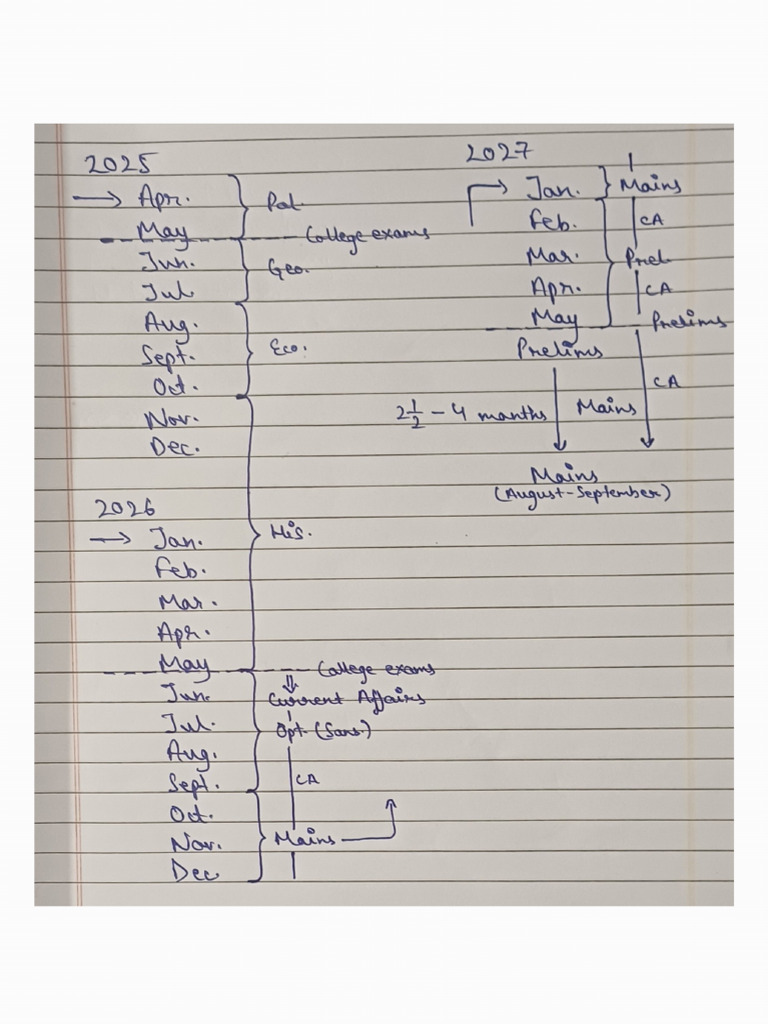 2025
→ Apr.
Pol.
May
College exams
Jun.
Geo.
Jul.
Aug.
Sept.
Eco.
Oct.
Nov.
Dec.
2026
→ Jan.
His.
Feb.
Mar.
Apr.
May
College exams
Jun.
Current Affairs
Jul.
Opt. (Sans.)
Aug.
Sept.
CA
Oct.
Nov.
Mains
Dec
2027
→ Jan.
Mains
Feb.
CA
Mar.
Prel.
Apr.
CA
May
Prelims
Prelims
CA
2 1/2 - 4 months
Mains
Mains
(August-September)